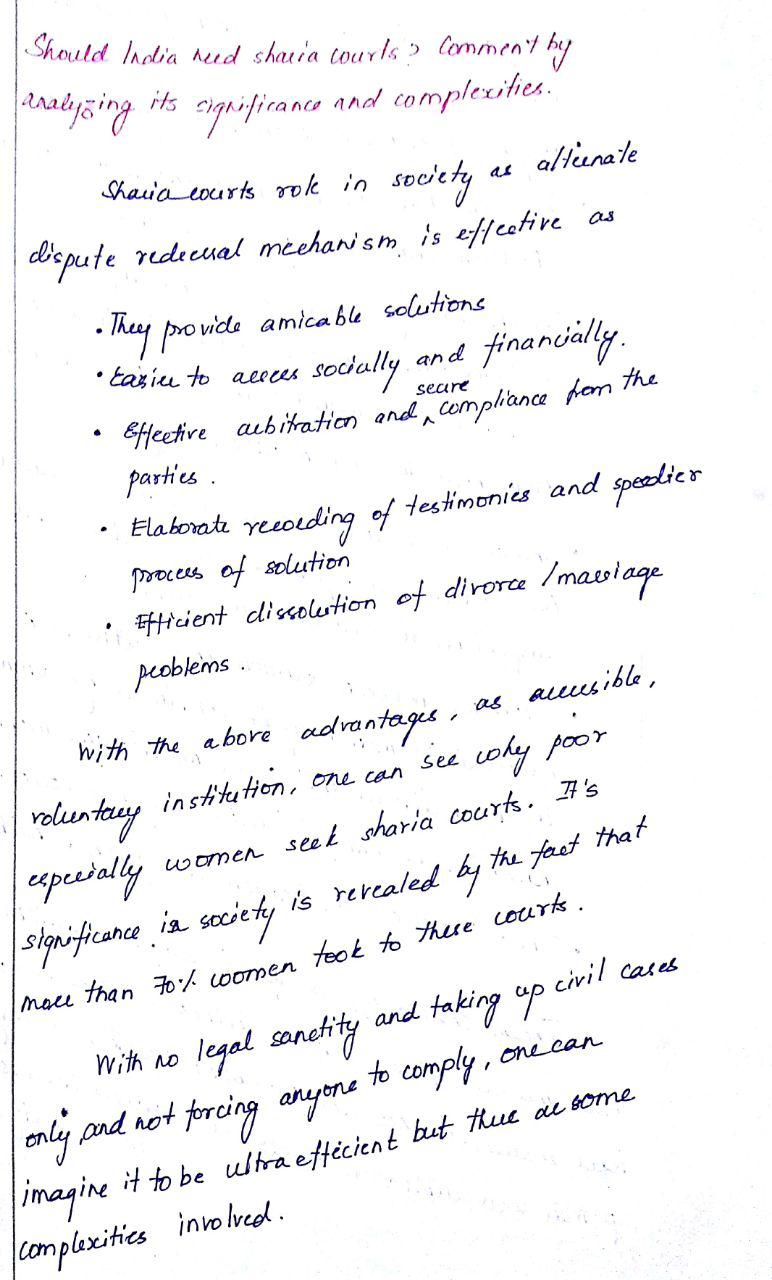 Should India need sharia courts? Comment by
analyzing its significance and complexities.
Sharia courts role in society as alternate
dispute redressal mechanism is effective as
• They provide amicable solutions
• Easier to access socially and financially.
• Effective arbitration and secure compliance from the
parties.
• Elaborate recording of testimonies and speedier
process of solution
• Efficient dissolution of divorce / marriage
problems.
With the above advantages, as accessible,
voluntary institution, one can see why poor
especially women seek sharia courts. It's
significance in society is revealed by the fact that
more than 70% women took to these courts.
With no legal sanctity and taking up civil cases
only, and not forcing anyone to comply, one can
imagine it to be ultra efficient but there are some
complexities involved.